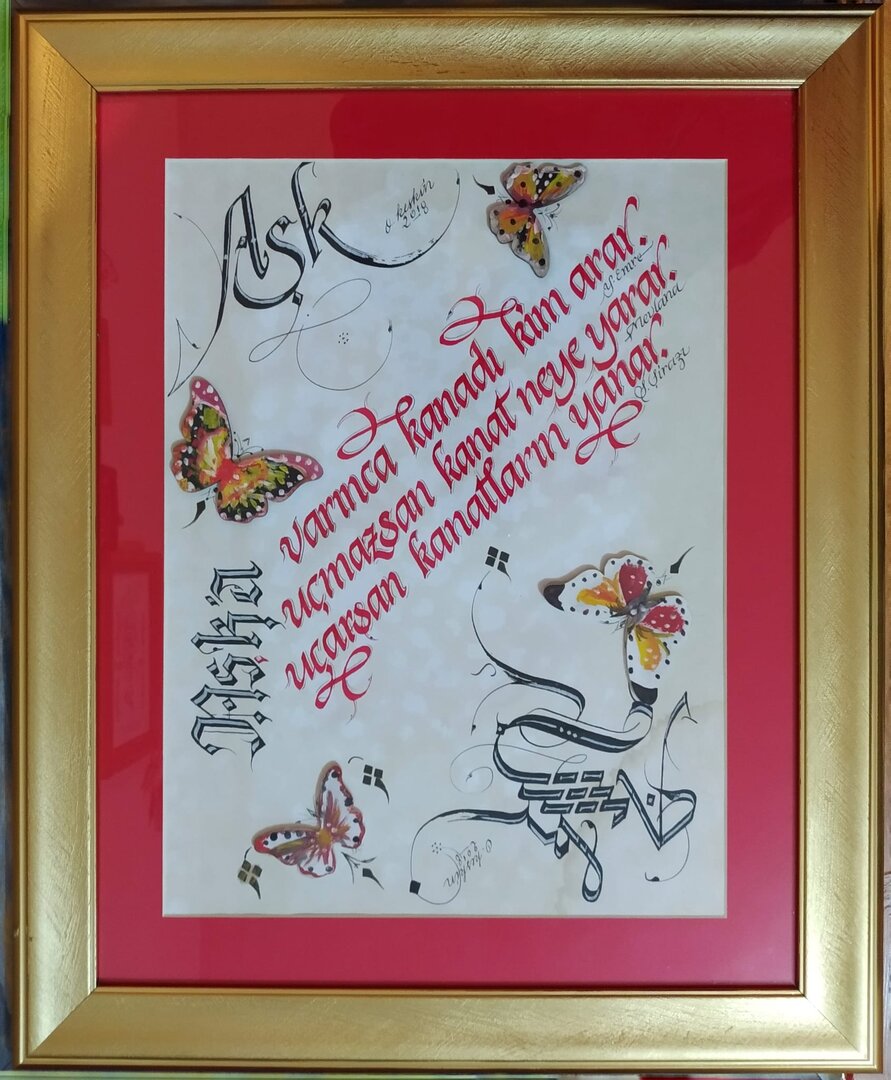 Aşk
o keskin
2018
Aşk'a
varınca kanadı kim arar.
Y. Emre
uçmazsan kanat neye yarar.
Mevlana
uçarsan kanatların yanar.
Şirazi
O. keskin